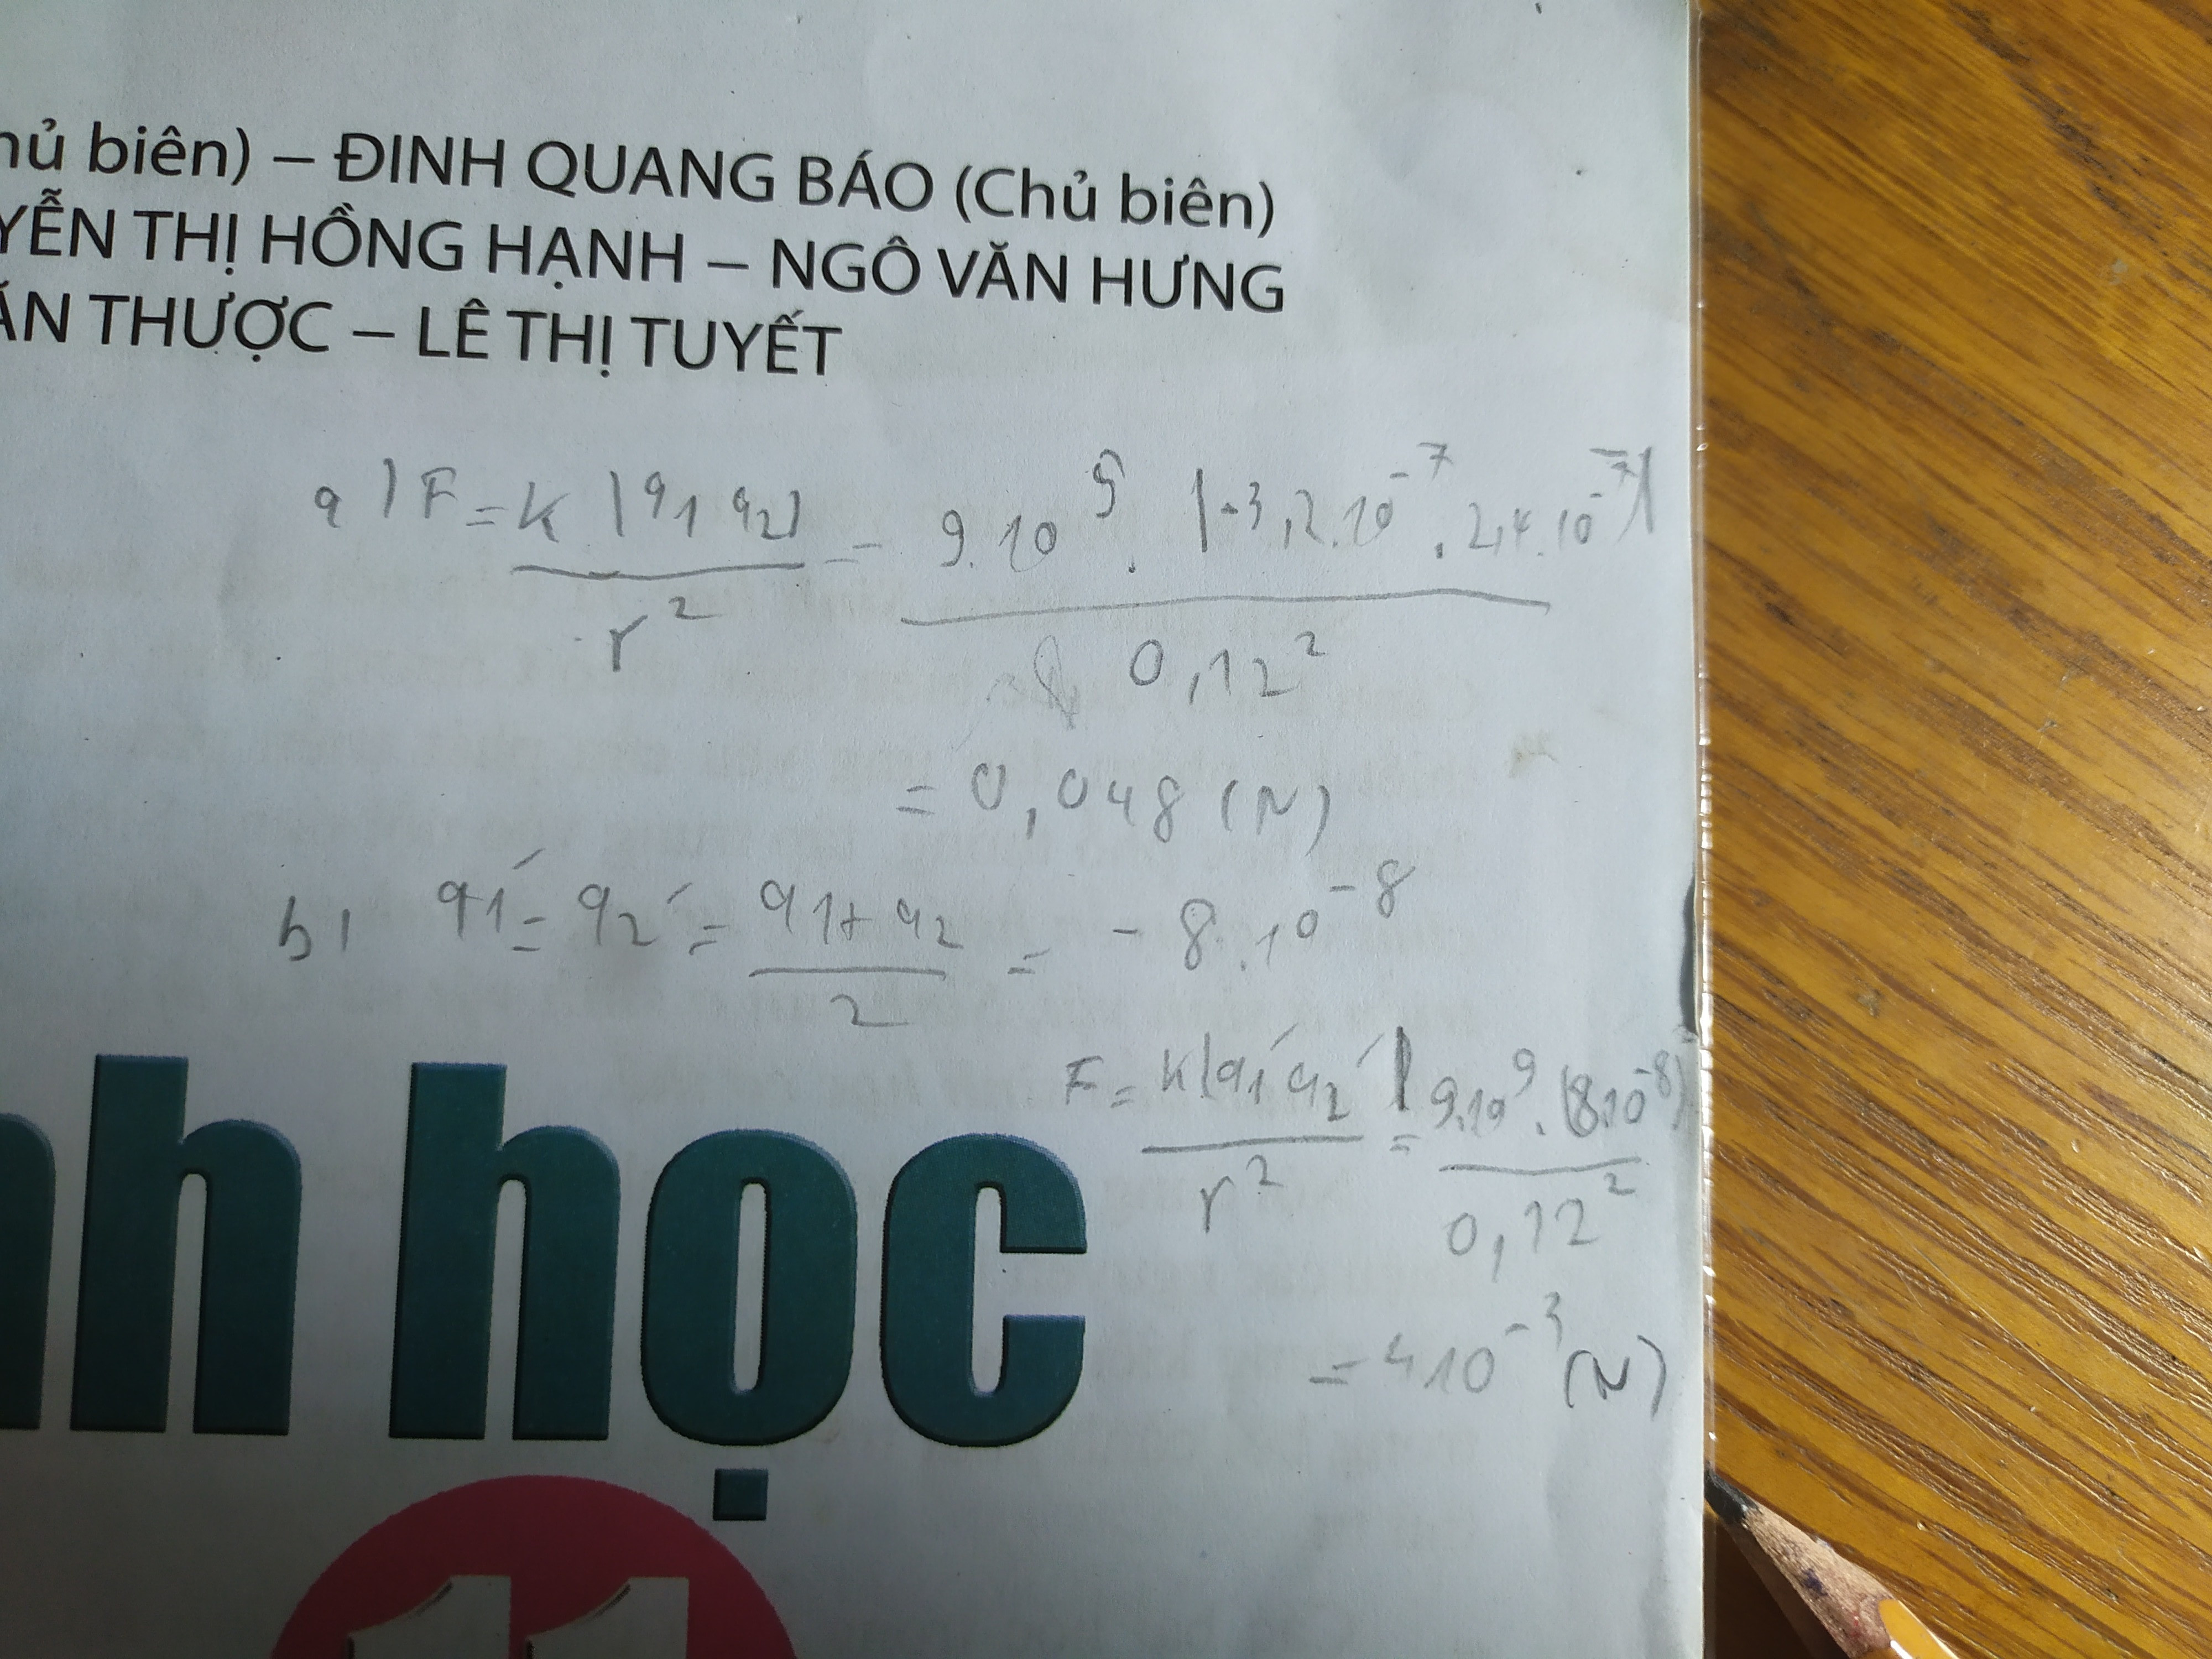 hủ biên) – ĐINH QUANG BÁO (Chủ biên)
YỄN THỊ HỒNG HẠNH – NGÔ VĂN HƯNG
ĂN THƯỢC – LÊ THỊ TUYẾT
a) F = k |q1 q2| / r² = 9.10⁹ . |-3,2.10⁻⁷ . 2,4.10⁻⁷| / 0,12²
= 0,048 (N)
b) q1' = q2' = q1 + q2 / 2 = - 8.10⁻⁸
F = k|q1' q2'| / r² = 9.10⁹ . (8.10⁻⁸) / 0,12²
= 4 10⁻³ (N)
nh học
11